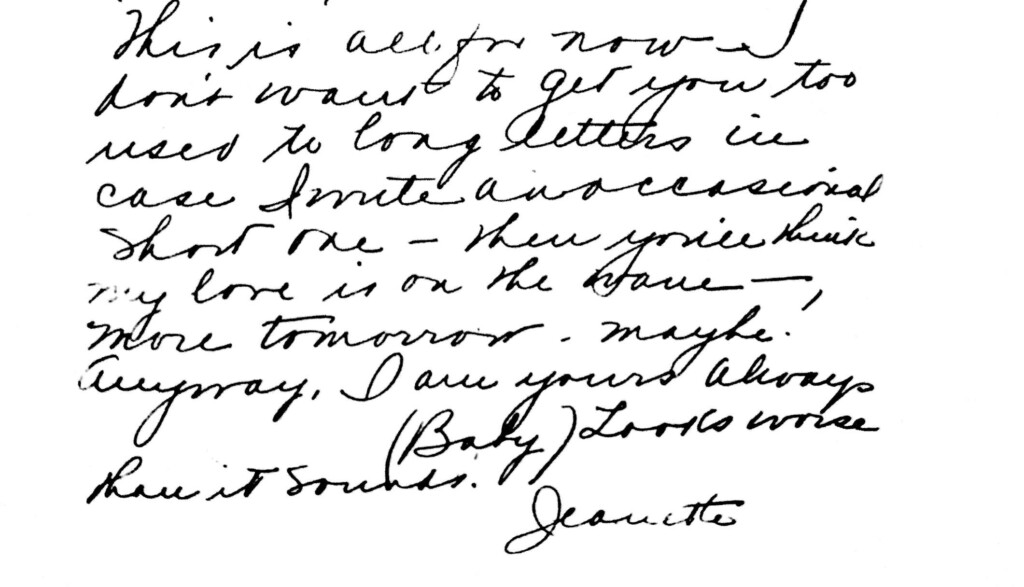 This is all for now – I
don't want to get you too
used to long letters in
case I write an occasional
short one – then you'll think
my love is on the wane –,
more tomorrow – maybe!
Anyway, I am yours always
(Baby) Looks worse
than it sounds.
Jeanette